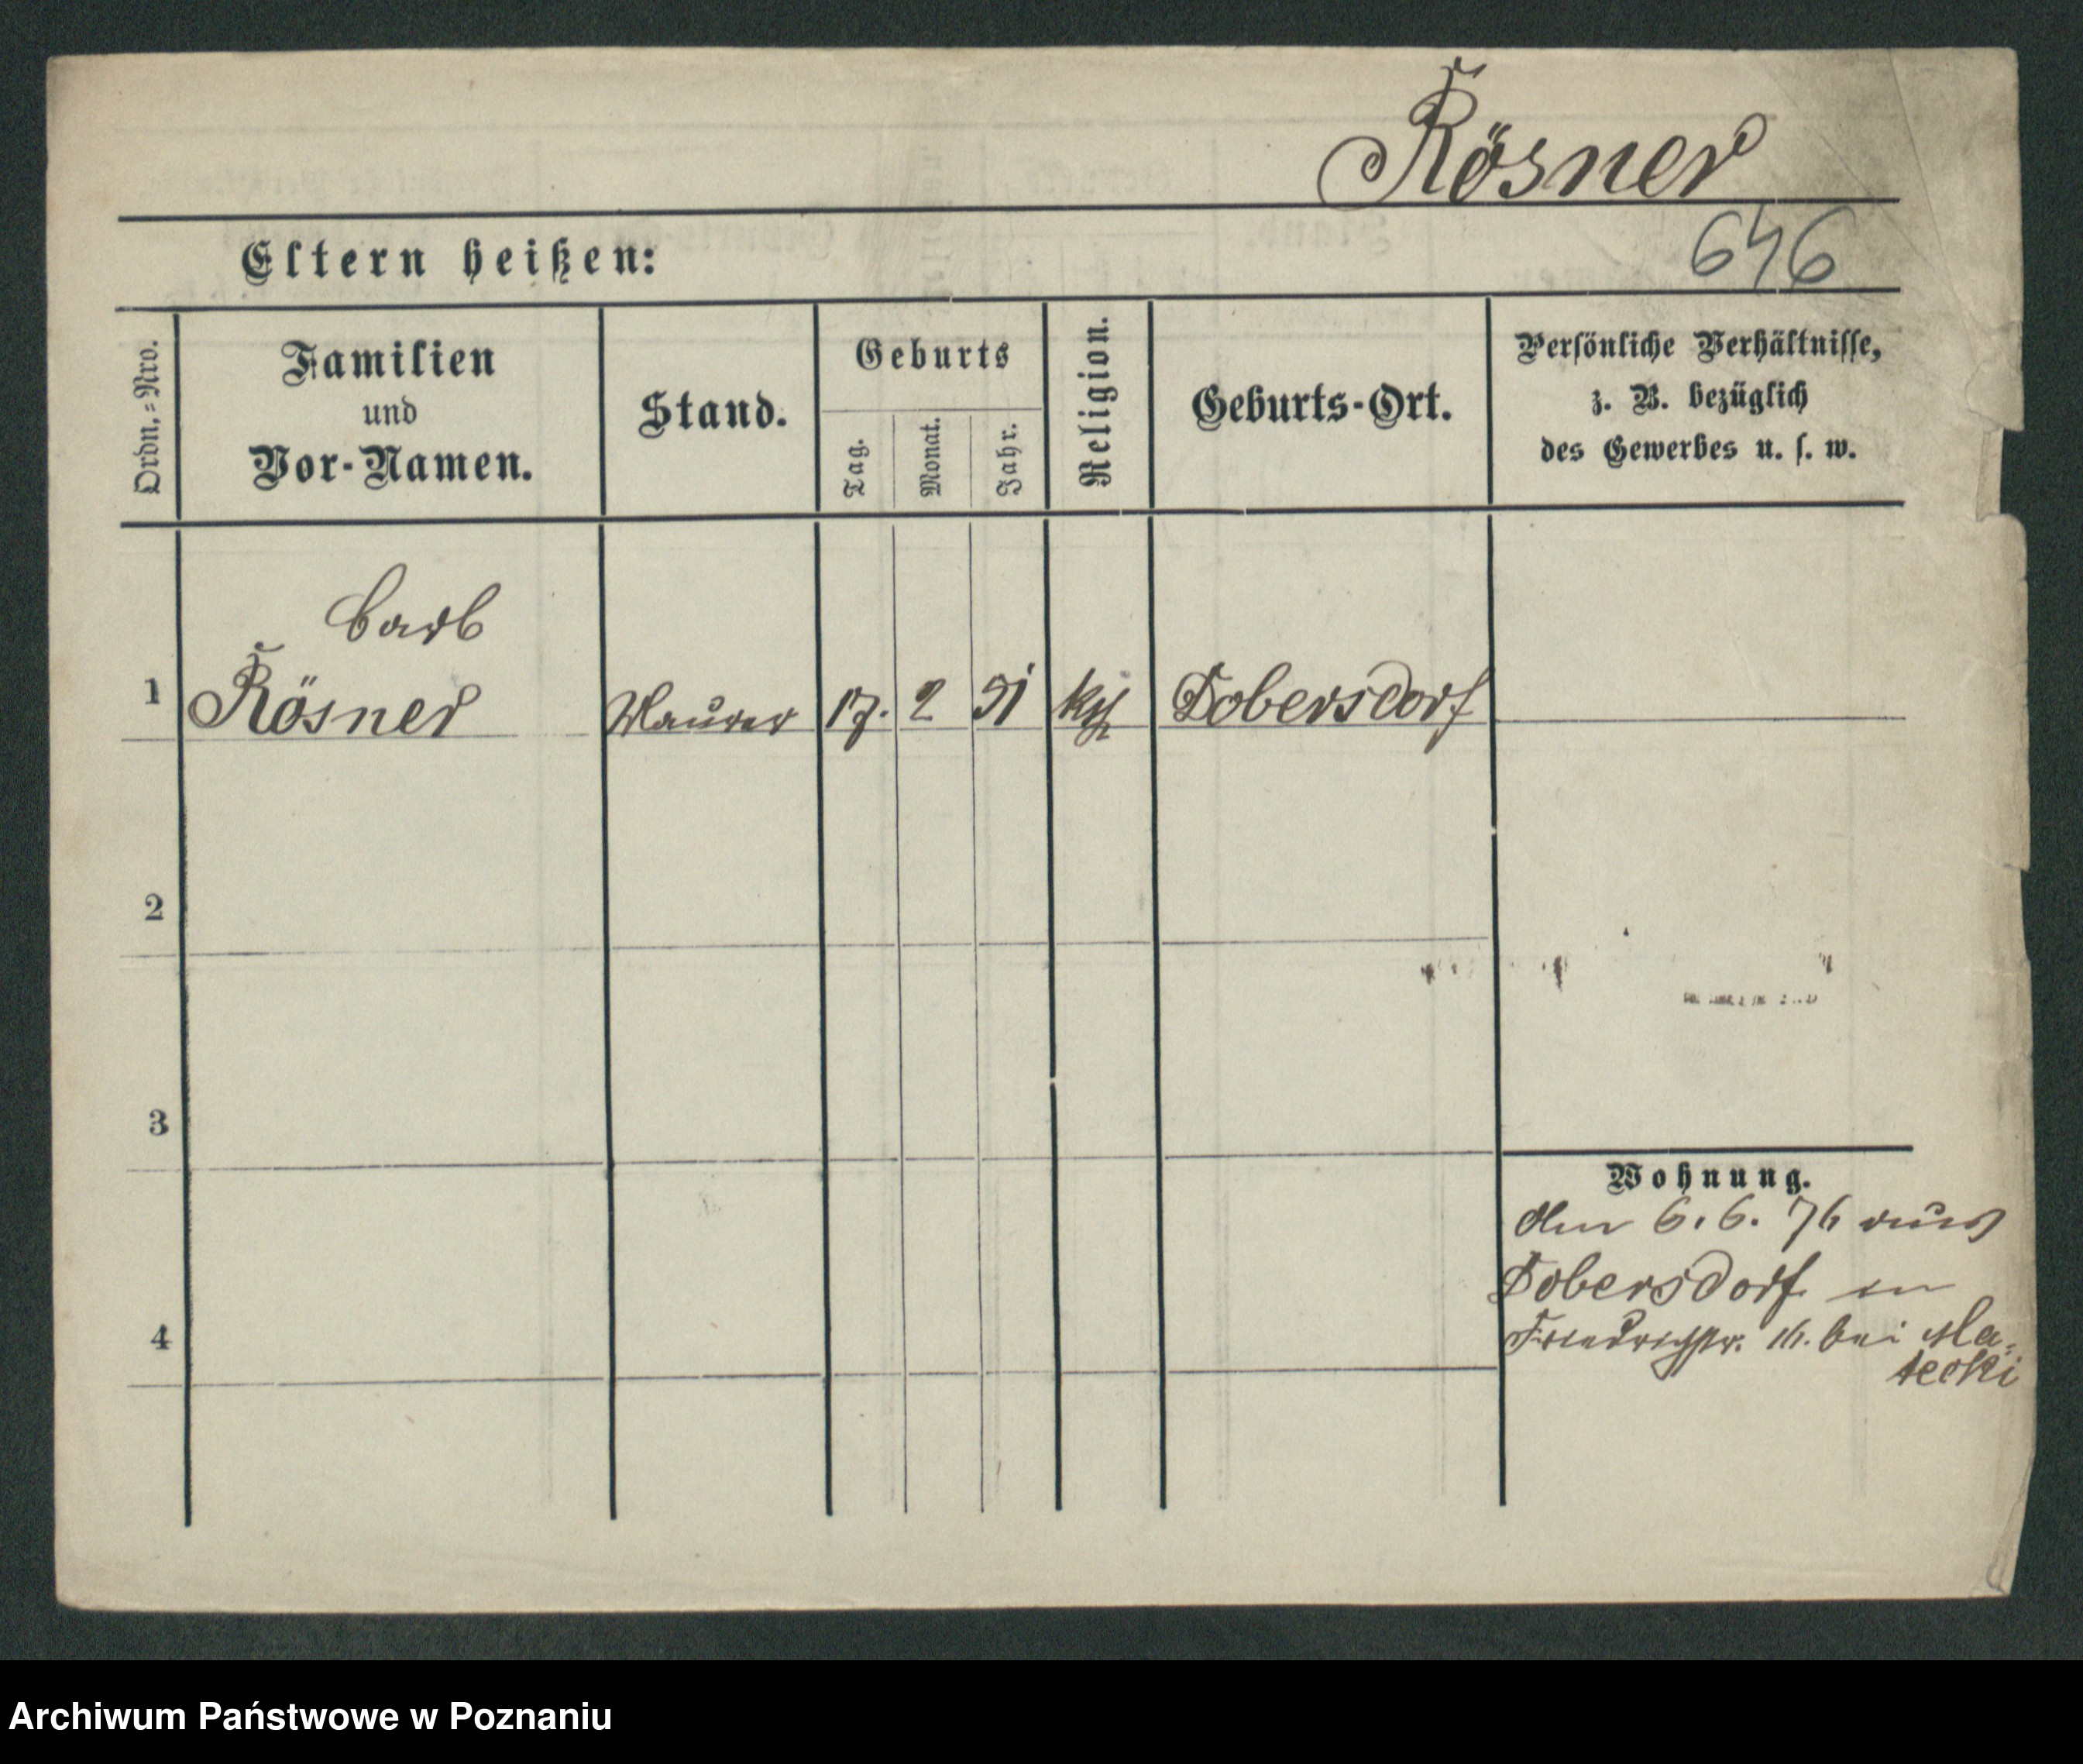 Rösner
646
Eltern heißen:
Ordn.=Nro.
Familien
und
Vor-Namen.
Stand.
Geburts
Tag.
Monat.
Jahr.
Religion.
Geburts-Ort.
Persönliche Verhältnisse,
z. B. bezüglich
des Gewerbes u. s. w.
Carl
1 Rösner Maurer 17. 2 51 kth Dobersdorf
2
3
4
Wohnung.
Am 6. 6. 76 aus
Dobersdorf in
Friedrichstr. 16. bei Ma-
tecki
Archiwum Państwowe w Poznaniu